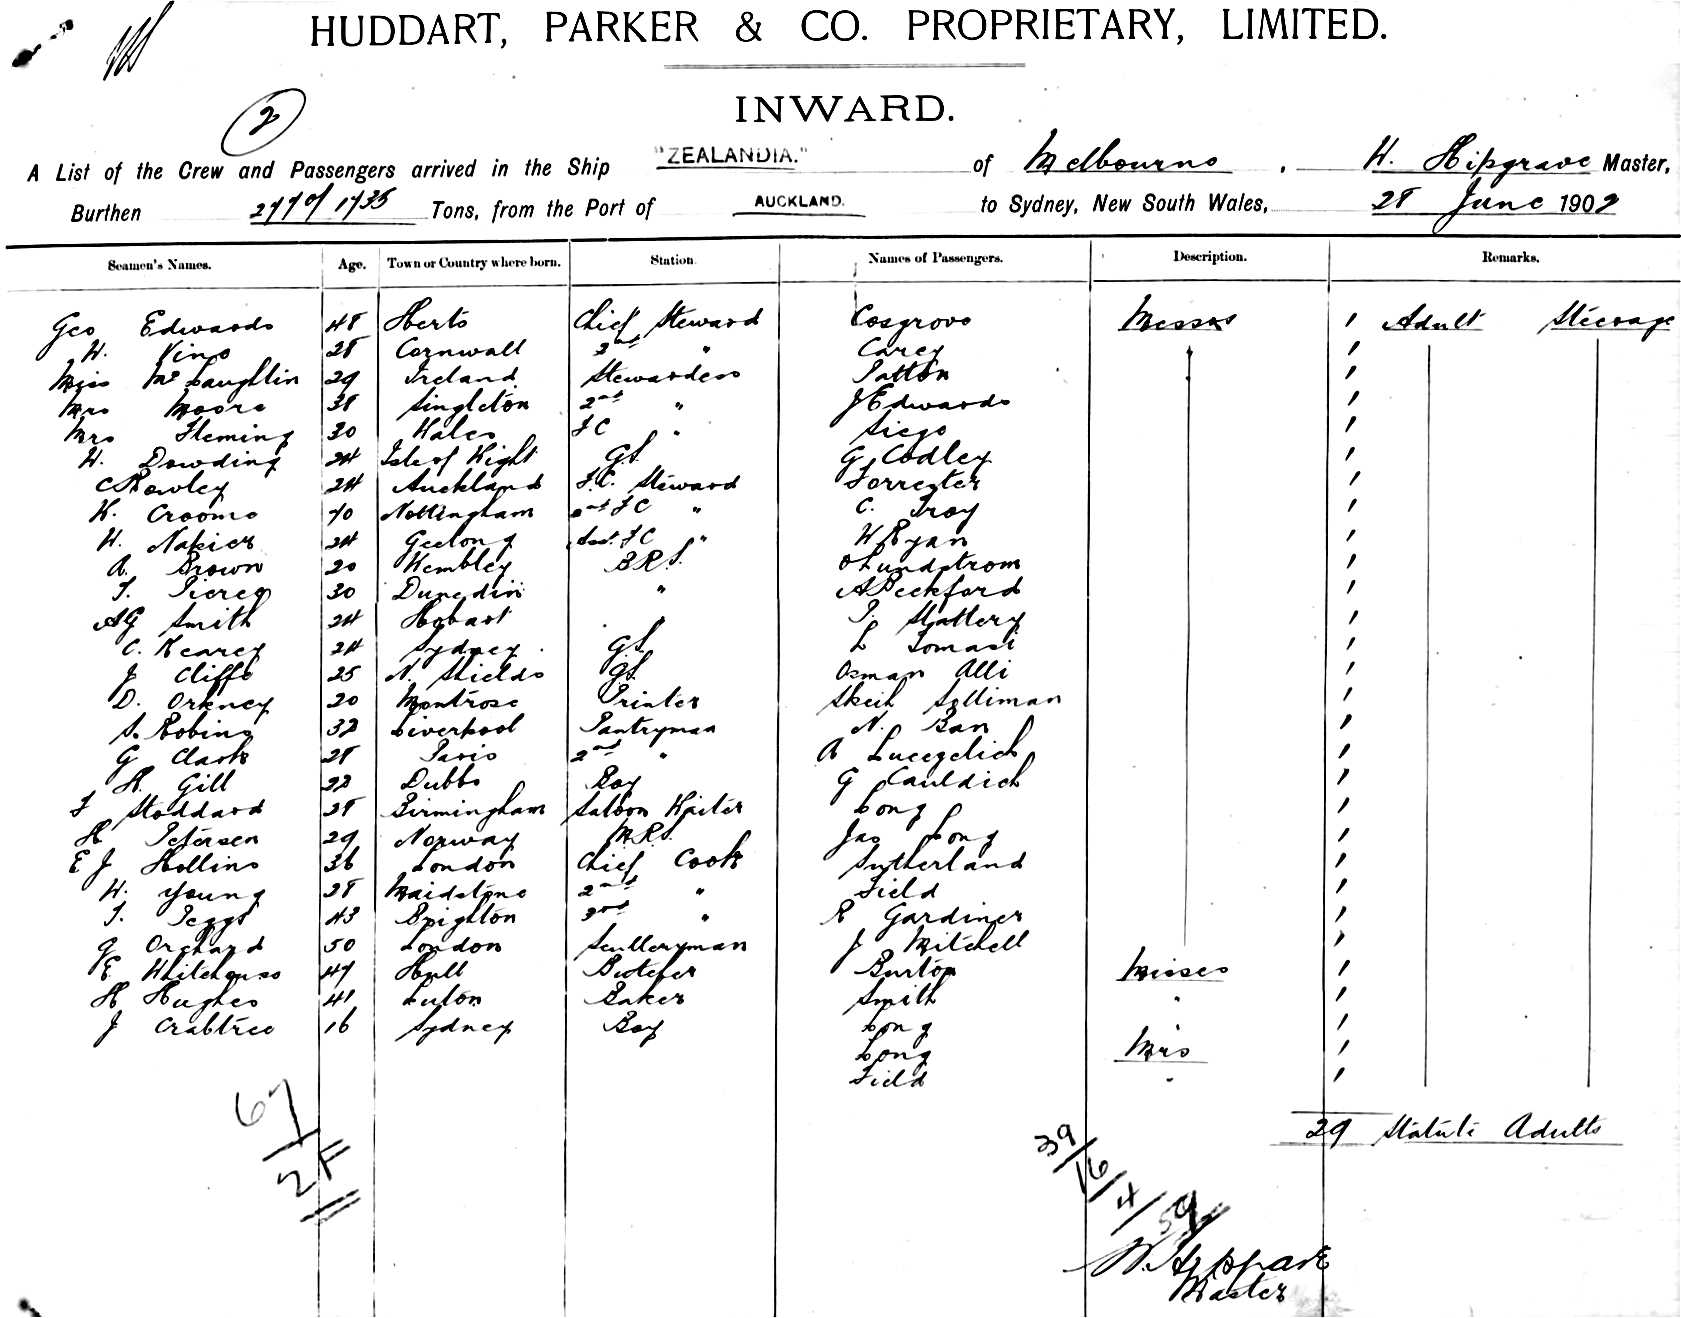 HUDDART, PARKER & CO. PROPRIETARY, LIMITED.
INWARD.
2
A List of the Crew and Passengers arrived in the Ship "ZEALANDIA." of Melbourne, H. Hipgrave Master,
Burthen 2770/1735 Tons, from the Port of AUCKLAND. to Sydney, New South Wales, 28 June 1902
Seamen's Names. Age. Town or Country where born. Station Names of Passengers. Description. Remarks.
Geo Edwards 48 Herts Chief Steward Cosgrove Messrs 1 Adult Steerage
H. Vino 28 Cornwall 2nd " Carey 1
Miss McLaughlin 29 Ireland Stewardess Patton 1
Mrs Moore 38 Singleton 2nd " J Edwards 1
Mrs Fleming 30 Wales FC " Siego 1
H. Dowding 24 Isle of Wight GS. G Codley 1
C Rowley 24 Auckland F.C. Steward Forrester 1
H. Croome 40 Nottingham 2nd FC " C. Troy 1
H. Napier 24 Geelong Asst. FC " W Ryan 1
A. Brown 20 Wembley B.R.S. O Lundstrom 1
T. Pierce 30 Dunedin " A Beckford 1
AG Smith 24 Hobart " P. Slattery 1
C. Kearey 24 Sydney G.S. L Tomasi 1
J Cliffe 25 N. Shields GS. Osman Alli 1
D. Orkney 20 Montrose Printer Skeik Selliman 1
S. Robins 32 Liverpool Pantryman N. Ban 1
G Clark 28 Paris 2nd " A 1
H. Gill 22 Dubbo Boy G Cauldich 1
F Stoddard 28 Birmingham Saloon Waiter Long 1
H Petersen 29 Norway M.R.S. Jas Long 1
E J Hollins 36 London Chief Cook Sutherland 1
H. Young 28 Maidstone 2nd " Field 1
T. Peggs 43 Brighton 3rd " R Gardiner 1
G Orchard 50 London Sculleryman J Mitchell 1
E Whitehouse 47 Hull Butcher Burton Misses 1
H Hughes 41 Luton Baker Smith " 1
J Crabtree 16 Sydney Boy Long " 1
Long Mrs 1
Field " 1
29 Statute Adults
67
2F
39/16/4/59
Master